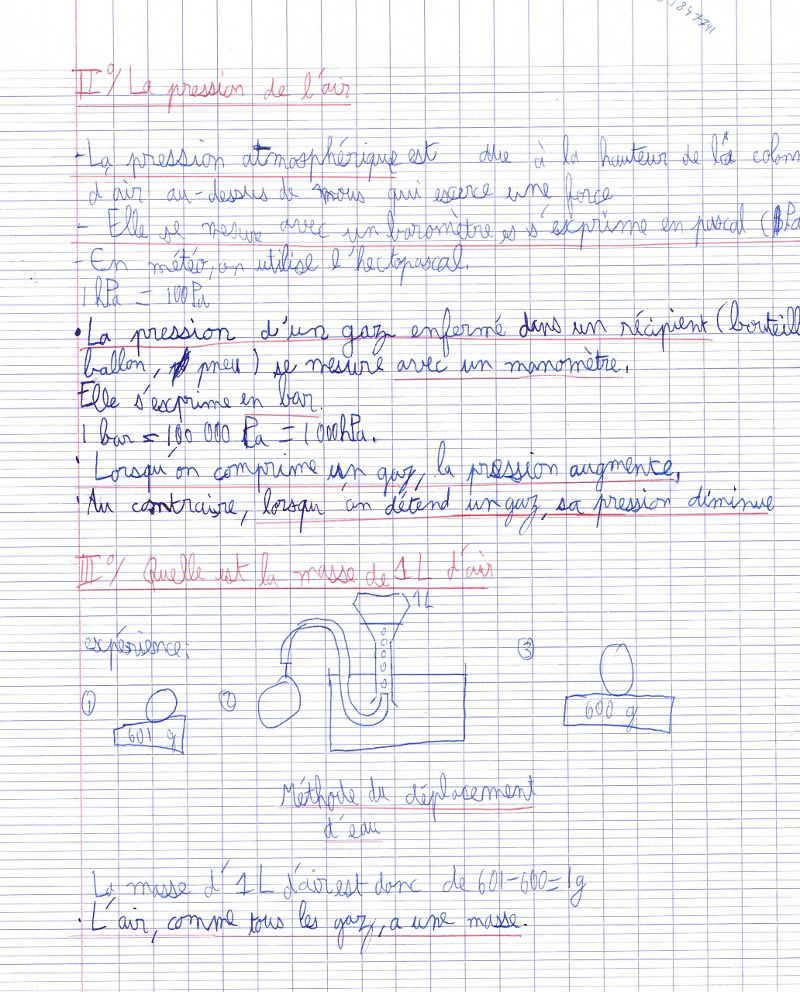 II°/ La pression de l'air
- La pression atmosphérique est due à la hauteur de la colonn
d'air au-dessus de nous qui exerce une force
- Elle se mesure avec un baromètre es s'exprime en pascal (Pa
- En météo, on utilise l'hectopascal.
1 hPa = 100 Pa
• La pression d'un gaz enfermé dans un récipient (bouteill
ballon, pneu) se mesure avec un manomètre.
Elle s'exprime en bar.
1 bar = 100 000 Pa = 1000 hPa.
• Lorsqu'on comprime un gaz, la pression augmente.
• Au contraire, lorsqu'on détend un gaz, sa pression diminue
III°/ Quelle est la masse de 1L d'air
1L
expérience:
① ② ③
601 g
600 g
Méthode du déplacement
d'eau
La masse d'1L d'air est donc de 601-600=1g
• L'air, comme tous les gaz, a une masse.